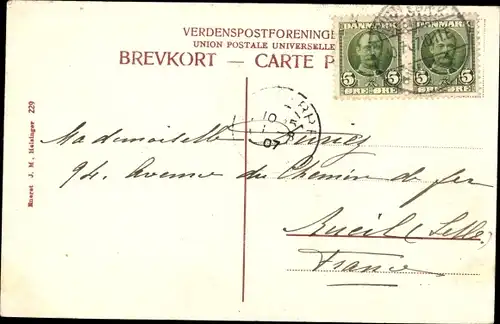 VERDENSPOSTFORENINGE
UNION POSTALE UNIVERSELLE
BREVKORT — CARTE P
DANMARK DANMARK
5 5 5 5
ØRE ØRE ØRE ØRE
10
07
Mademoiselle
94. Avenue du Chemin de fer
Rueil (
France
Eneret J. M., Helsingør 229